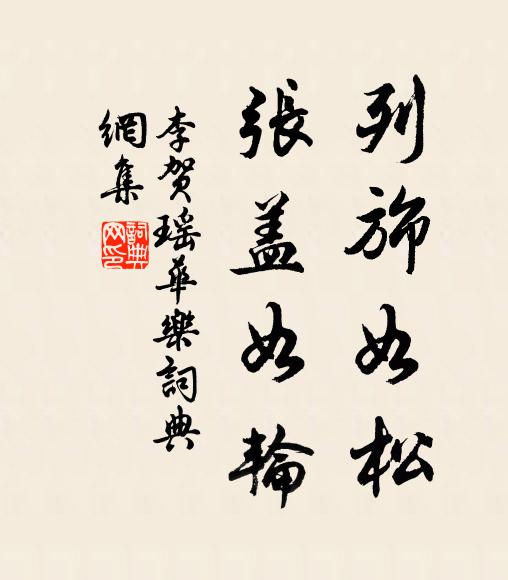 列旆如松
張盖如輪
李賀瑶華樂詞典
網集
詞典
网印